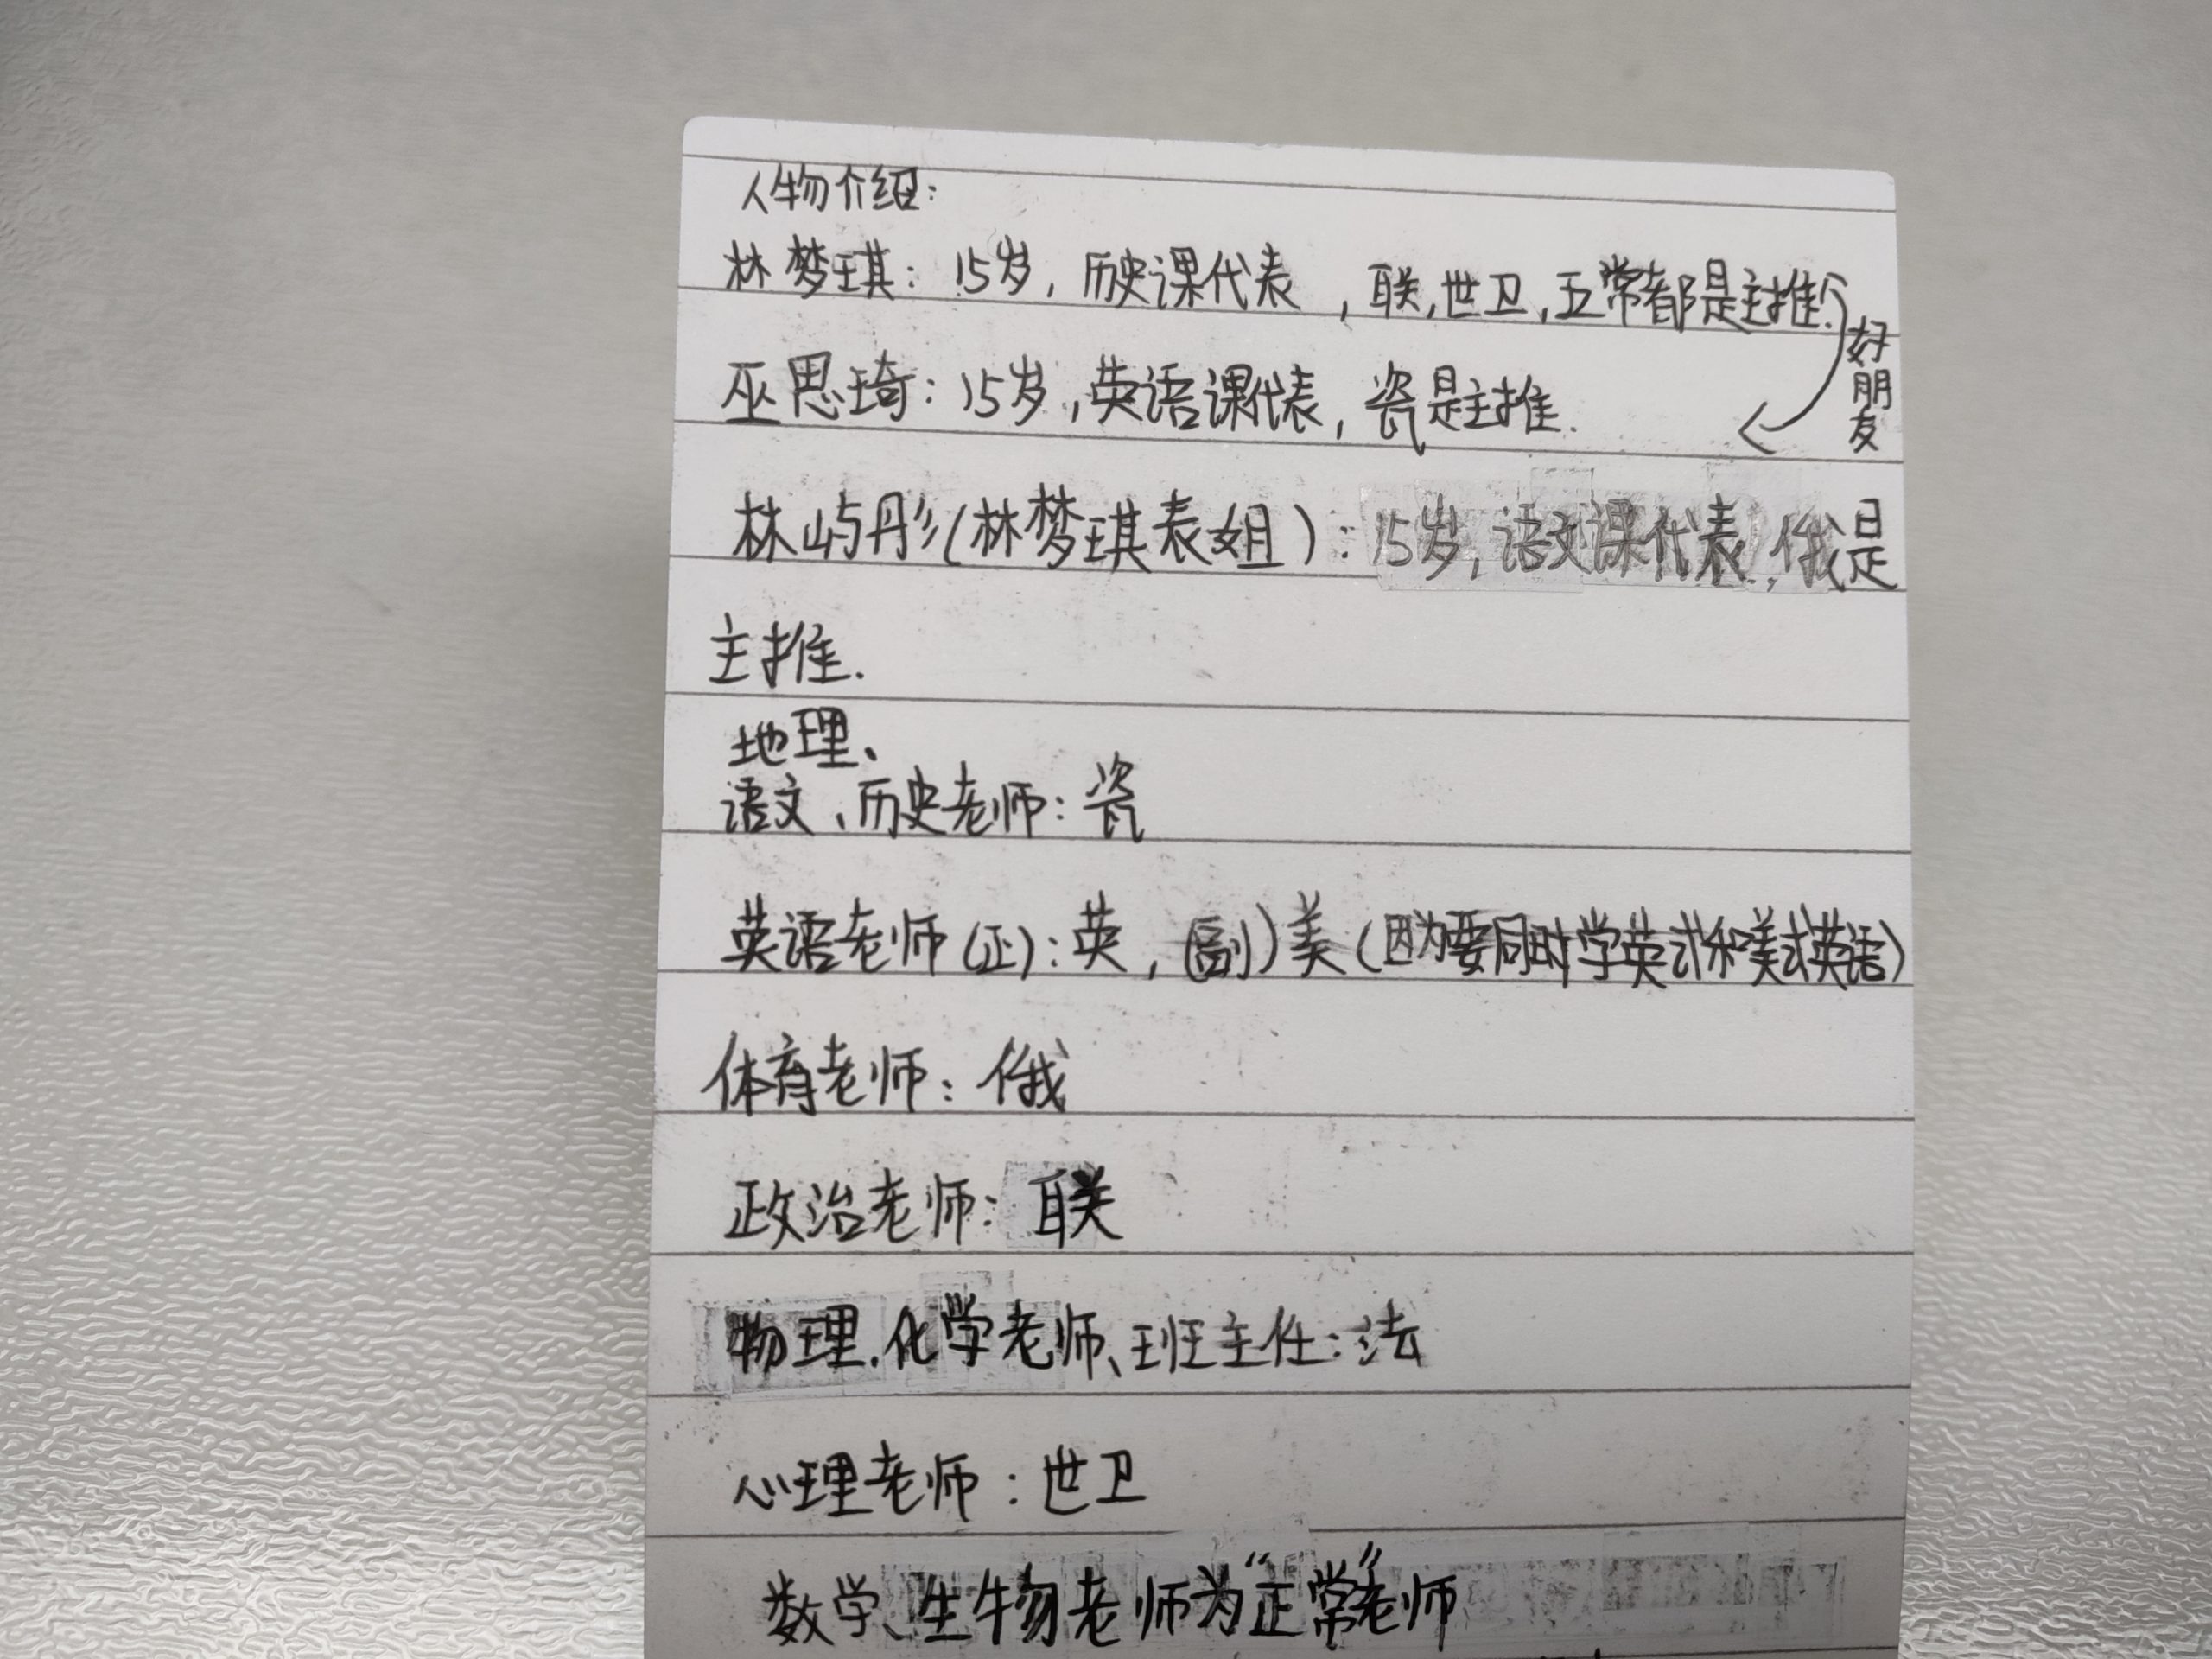 人物介绍:
林梦琪: 15岁, 历史课代表, 联, 世卫, 五常都是主推.
好朋友
巫思琦: 15岁, 英语课代表, 瓷是主推.
林屿彤(林梦琪表姐): 15岁, 语文课代表, 俄是
主推.
地理、
语文、历史老师: 瓷
英语老师(正): 英, (副)美(因为要同时学英式和美式英语)
体育老师: 俄
政治老师: 联
物理、化学老师、班主任: 法
心理老师: 世卫
数学、生物老师为“正常”老师